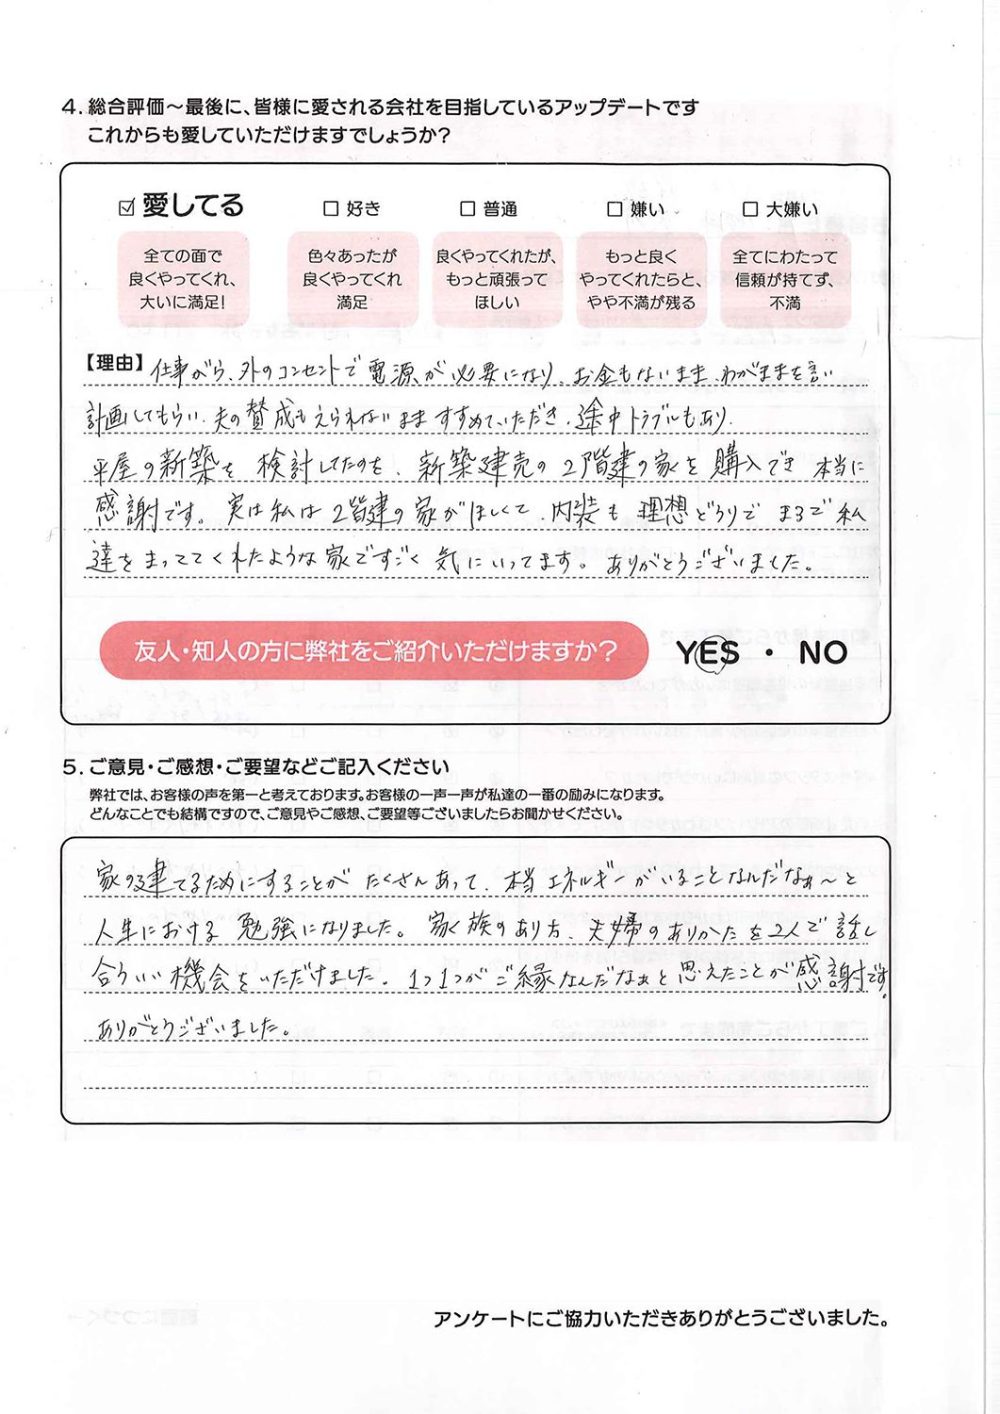 4. 総合評価～最後に、皆様に愛される会社を目指しているアップデートです
これからも愛していただけますでしょうか?
☑ 愛してる
□ 好き
□ 普通
□ 嫌い
□ 大嫌い
全ての面で
良くやってくれ、
大いに満足!
色々あったが
良くやってくれ
満足
良くやってくれたが、
もっと頑張って
ほしい
もっと良く
やってくれたらと、
やや不満が残る
全てにわたって
信頼が持てず、
不満
【理由】仕事がら、外のコンセントで電源が必要になり、お金もないまま、わがままを言い
計画してもらい、夫の賛成もえられないまますすめていただき、途中トラブルもあり、
平屋の新築を検討してたのを、新築建売の2階建の家を購入でき本当に
感謝です。実は私は2階建の家がほしくて、内装も理想どうりでまるで私
達をまっててくれたような家ですごく気にいってます。ありがとうございました。
友人・知人の方に弊社をご紹介いただけますか?
YES ・ NO
5. ご意見・ご感想・ご要望などご記入ください
弊社では、お客様の声を第一と考えております。お客様の一声一声が私達の一番の励みになります。
どんなことでも結構ですので、ご意見やご感想、ご要望等ございましたらお聞かせください。
家の建てるためにすることがたくさんあって、本当エネルギーがいることなんだなぁ～と
人生における勉強になりました。家族のあり方、夫婦のありかたを2人で話し
合ういい機会をいただけました。1つ1つがご縁なんだなぁと思えたことが感謝です。
ありがとうございました。
アンケートにご協力いただきありがとうございました。